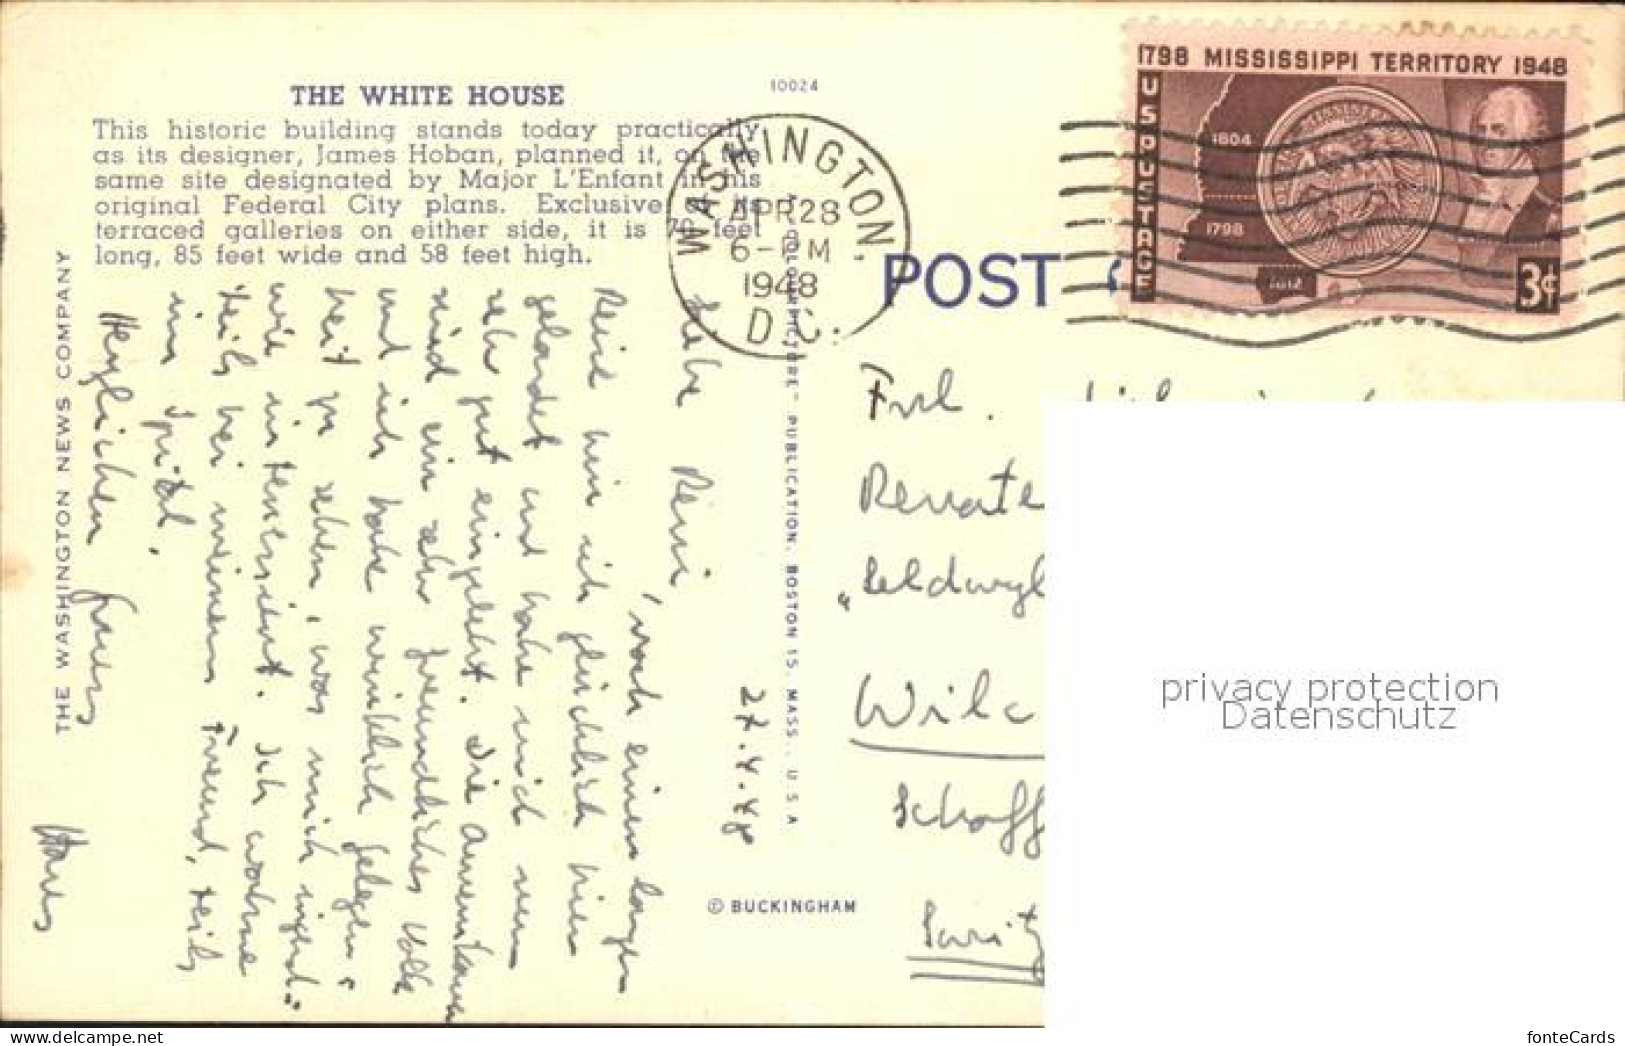 THE WHITE HOUSE
10024
This historic building stands today practically
as its designer, James Hoban, planned it, on the
same site designated by Major L'Enfant in his
original Federal City plans. Exclusive its
terraced galleries on either side, it is 70 feet
long, 85 feet wide and 58 feet high.
THE WASHINGTON NEWS COMPANY
27.4.48
Liebe Reni, nach einer langen
Reise bin ich glücklich hier
gelandet und habe mich nun
sehr gut eingelebt. Die Amerikaner
sind ein sehr freundliches Volk
und ich habe wirklich Gelegen=
heit zu sehen, was mich
wie interessiert. Ich wohne
teils bei meinem Freund, teils
im Spital.
Herzlichen Gruss
Hans
PUBLICATION, BOSTON 15, MASS., U.S.A.
© BUCKINGHAM
WASHINGTON,
APR 28
6-PM
1948
D.C.
POST
1798 MISSISSIPPI TERRITORY 1948
U.S. POSTAGE
1804
1798
1812
3¢
Frl.
Renate
"Seldwyl
Wilc
Schaff
privacy protection
Datenschutz
www.delcampe.net
fonteCards